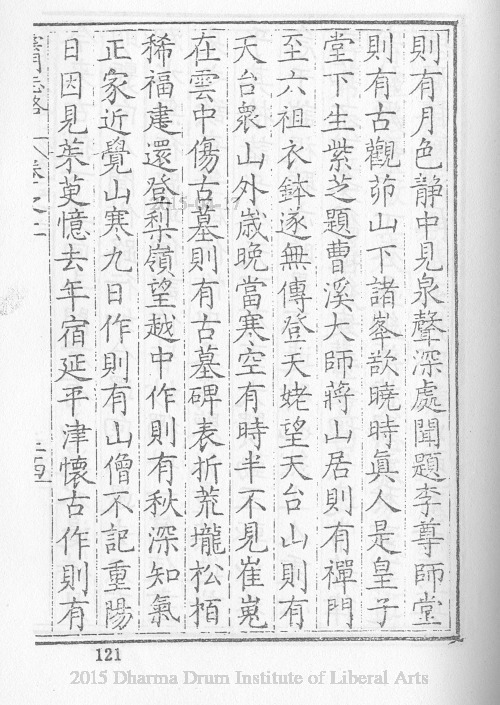 則有月色靜中見泉聲深處聞題李尊師堂
則有古觀茆山下諸峯欲曉時真人是皇子
堂下生紫芝題曹溪大師蔣山居則有禪門
至六祖衣鉢遂無傳登天姥望天台山則有
天台眾山外歲晚當寒空有時半不見崔嵬
在雲中傷古墓則有古墓碑表折荒壠松栢
稀福建還登梨嶺望越中作則有秋深知氣
正家近覺山寒九日作則有山僧不記重陽
日因見茱萸憶去年宿延平津懷古作則有
121
2015 Dharma Drum Institute of Liberal Arts